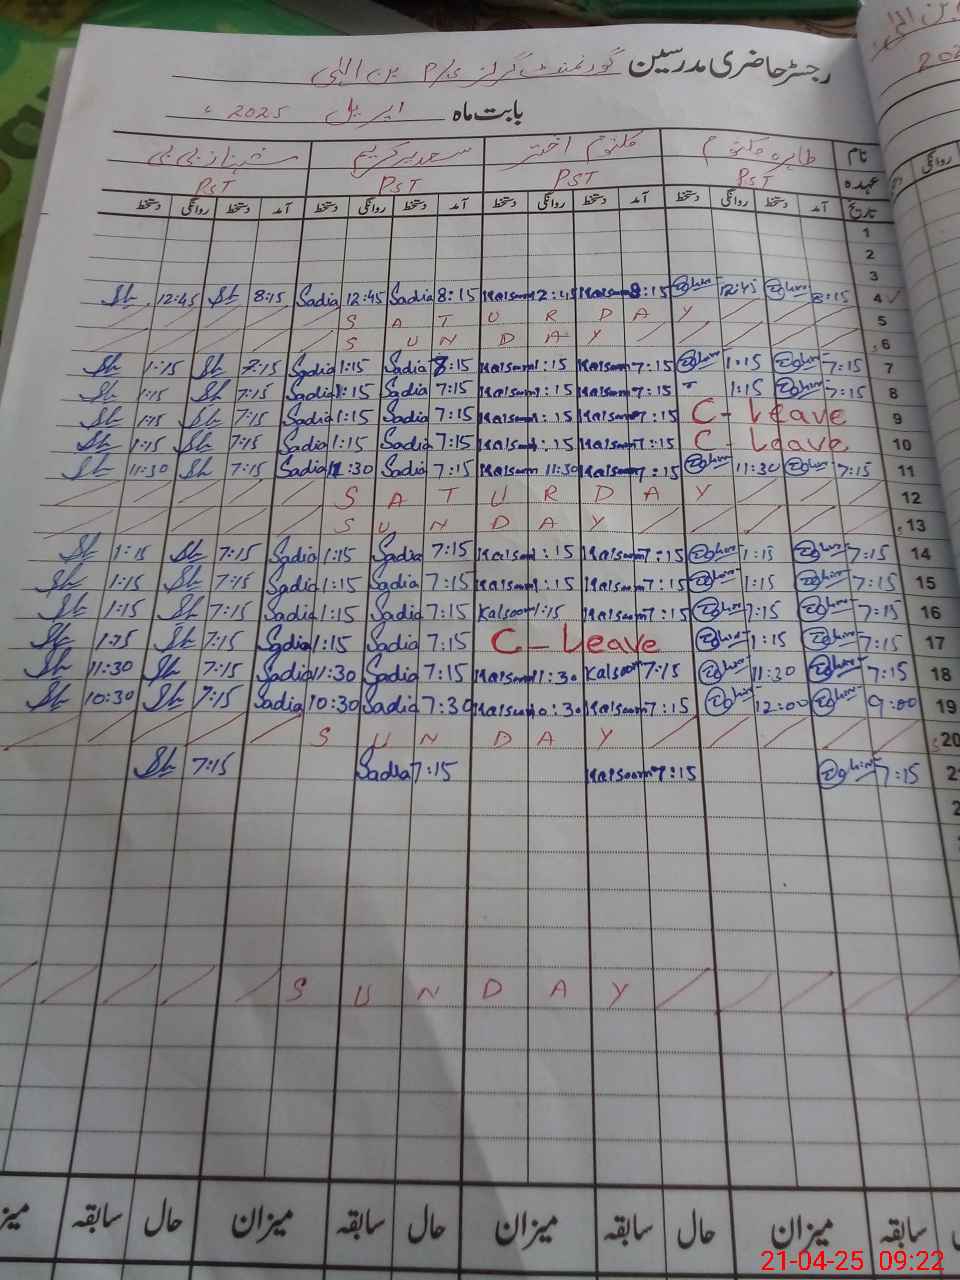 رجسٹر حاضری مدرسین گورنمنٹ گرلز P/S بن الہٰی
بابت ماہ اپریل 2025ء
نام طاہرہ کلثوم کلثوم اختر سعدیہ کریم شہناز بی بی
عہدہ PST PST PST PST
تاریخ آمد دستخط روانگی دستخط آمد دستخط روانگی دستخط آمد دستخط روانگی دستخط آمد دستخط روانگی دستخط
1
2
3
12:45 8:15 Sadia 12:45 Sadia 8:15 Kalsoom 12:45 Kalsoom 8:15 12:45 8:15 4
SATURDAY 5
SUNDAY 6
1:15 7:15 Sadia 1:15 Sadia 7:15 Kalsoom 1:15 Kalsoom 7:15 1:15 7:15 7
1:15 7:15 Sadia 1:15 Sadia 7:15 Kalsoom 1:15 Kalsoom 7:15 1:15 7:15 8
1:15 7:15 Sadia 1:15 Sadia 7:15 Kalsoom 1:15 Kalsoom 7:15 C-Leave 9
1:15 7:15 Sadia 1:15 Sadia 7:15 Kalsoom 1:15 Kalsoom 7:15 C-Leave 10
11:30 7:15 Sadia 11:30 Sadia 7:15 Kalsoom 11:30 Kalsoom 7:15 11:30 7:15 11
SATURDAY 12
SUNDAY 13
1:15 7:15 Sadia 1:15 Sadia 7:15 Kalsoom 1:15 Kalsoom 7:15 1:15 7:15 14
1:15 7:15 Sadia 1:15 Sadia 7:15 Kalsoom 1:15 Kalsoom 7:15 1:15 7:15 15
1:15 7:15 Sadia 1:15 Sadia 7:15 Kalsoom 1:15 Kalsoom 7:15 1:15 7:15 16
1:15 7:15 Sadia 1:15 Sadia 7:15 C-Leave 1:15 7:15 17
11:30 7:15 Sadia 11:30 Sadia 7:15 Kalsoom 11:30 Kalsoom 7:15 11:30 7:15 18
10:30 7:15 Sadia 10:30 Sadia 7:30 Kalsoom 10:30 Kalsoom 7:15 12:00 9:00 19
SUNDAY 20
7:15 Sadia 7:15 Kalsoom 7:15 7:15 21
SUNDAY
سابقہ میزان حال سابقہ میزان حال سابقہ میزان حال سابقہ
21-04-25 09:22